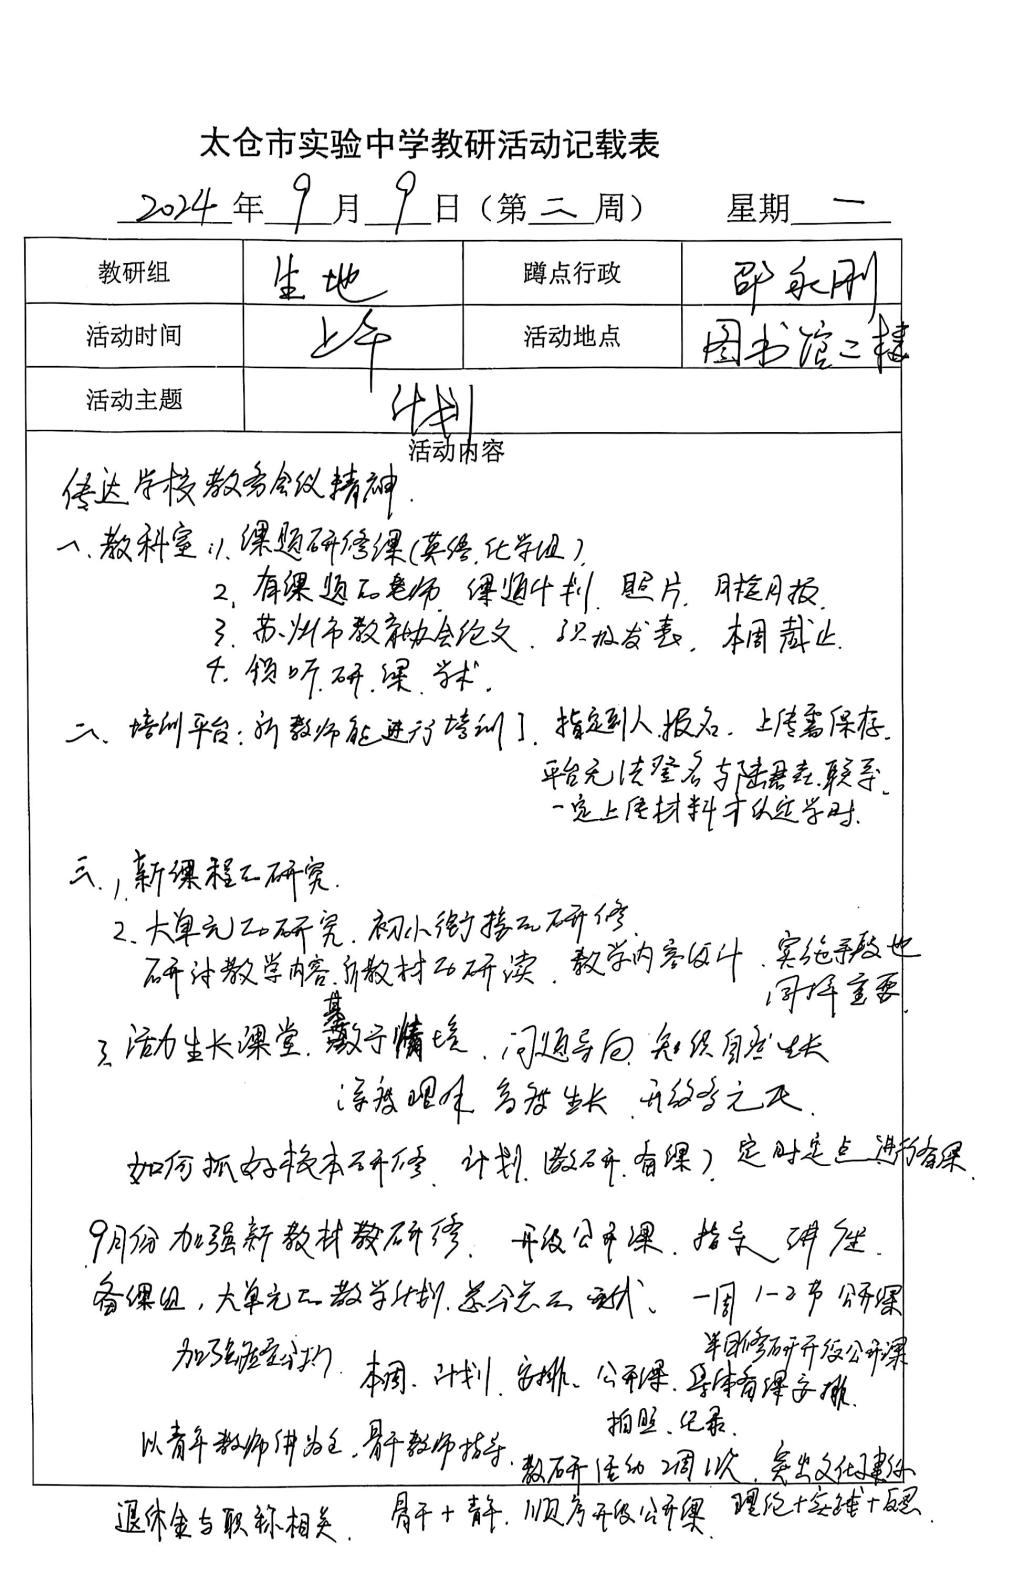 太仓市实验中学教研活动记载表
2024年9月9日（第二周） 星期一
教研组 生地 蹲点行政 邵永刚
活动时间 上午 活动地点 图书馆二楼
活动主题 计划
活动内容
传达学校教务会议精神.
一、教科室:1、课题研修课(英语.化学组)
2、有课题的老师 课题计划、照片、月检月报.
3、苏州市教育协会论文、积极发表、本周截止.
4、领听.研.课.学术.
二、培训平台:新教师能进行培训了、指定到人.报名.上传需保存.
平台无法登名与陆君 联系.
一定上传材料才认定学时.
三、1、新课程的研究.
2、大单元的研究.初小衔接的研修.
研讨教学内容.新教材的研读、教学内容设计、实施 也
同样重要.
3、活力生长课堂、基于情境、问题导向、知识自然生长
深度理解、高度生长、开放多元
如何抓好校本研修、计划(教研.备课)定时定点进行备课.
9月份加强新教材教研修、开设公开课、指导、讲座.
备课组,大单元的教学计划.总分总的 、一周1-2节公开课
加强质量分析. 半日修研开设公开课
本周、计划、安排、公开课.集体备课安排.
拍照、纪录.
以青年教师讲为主、骨干教师指导.
教研活动2周1次、突出文化建设
退休金与职称相关. 骨干+青年、顺序开设公开课 理论+实践+反思.